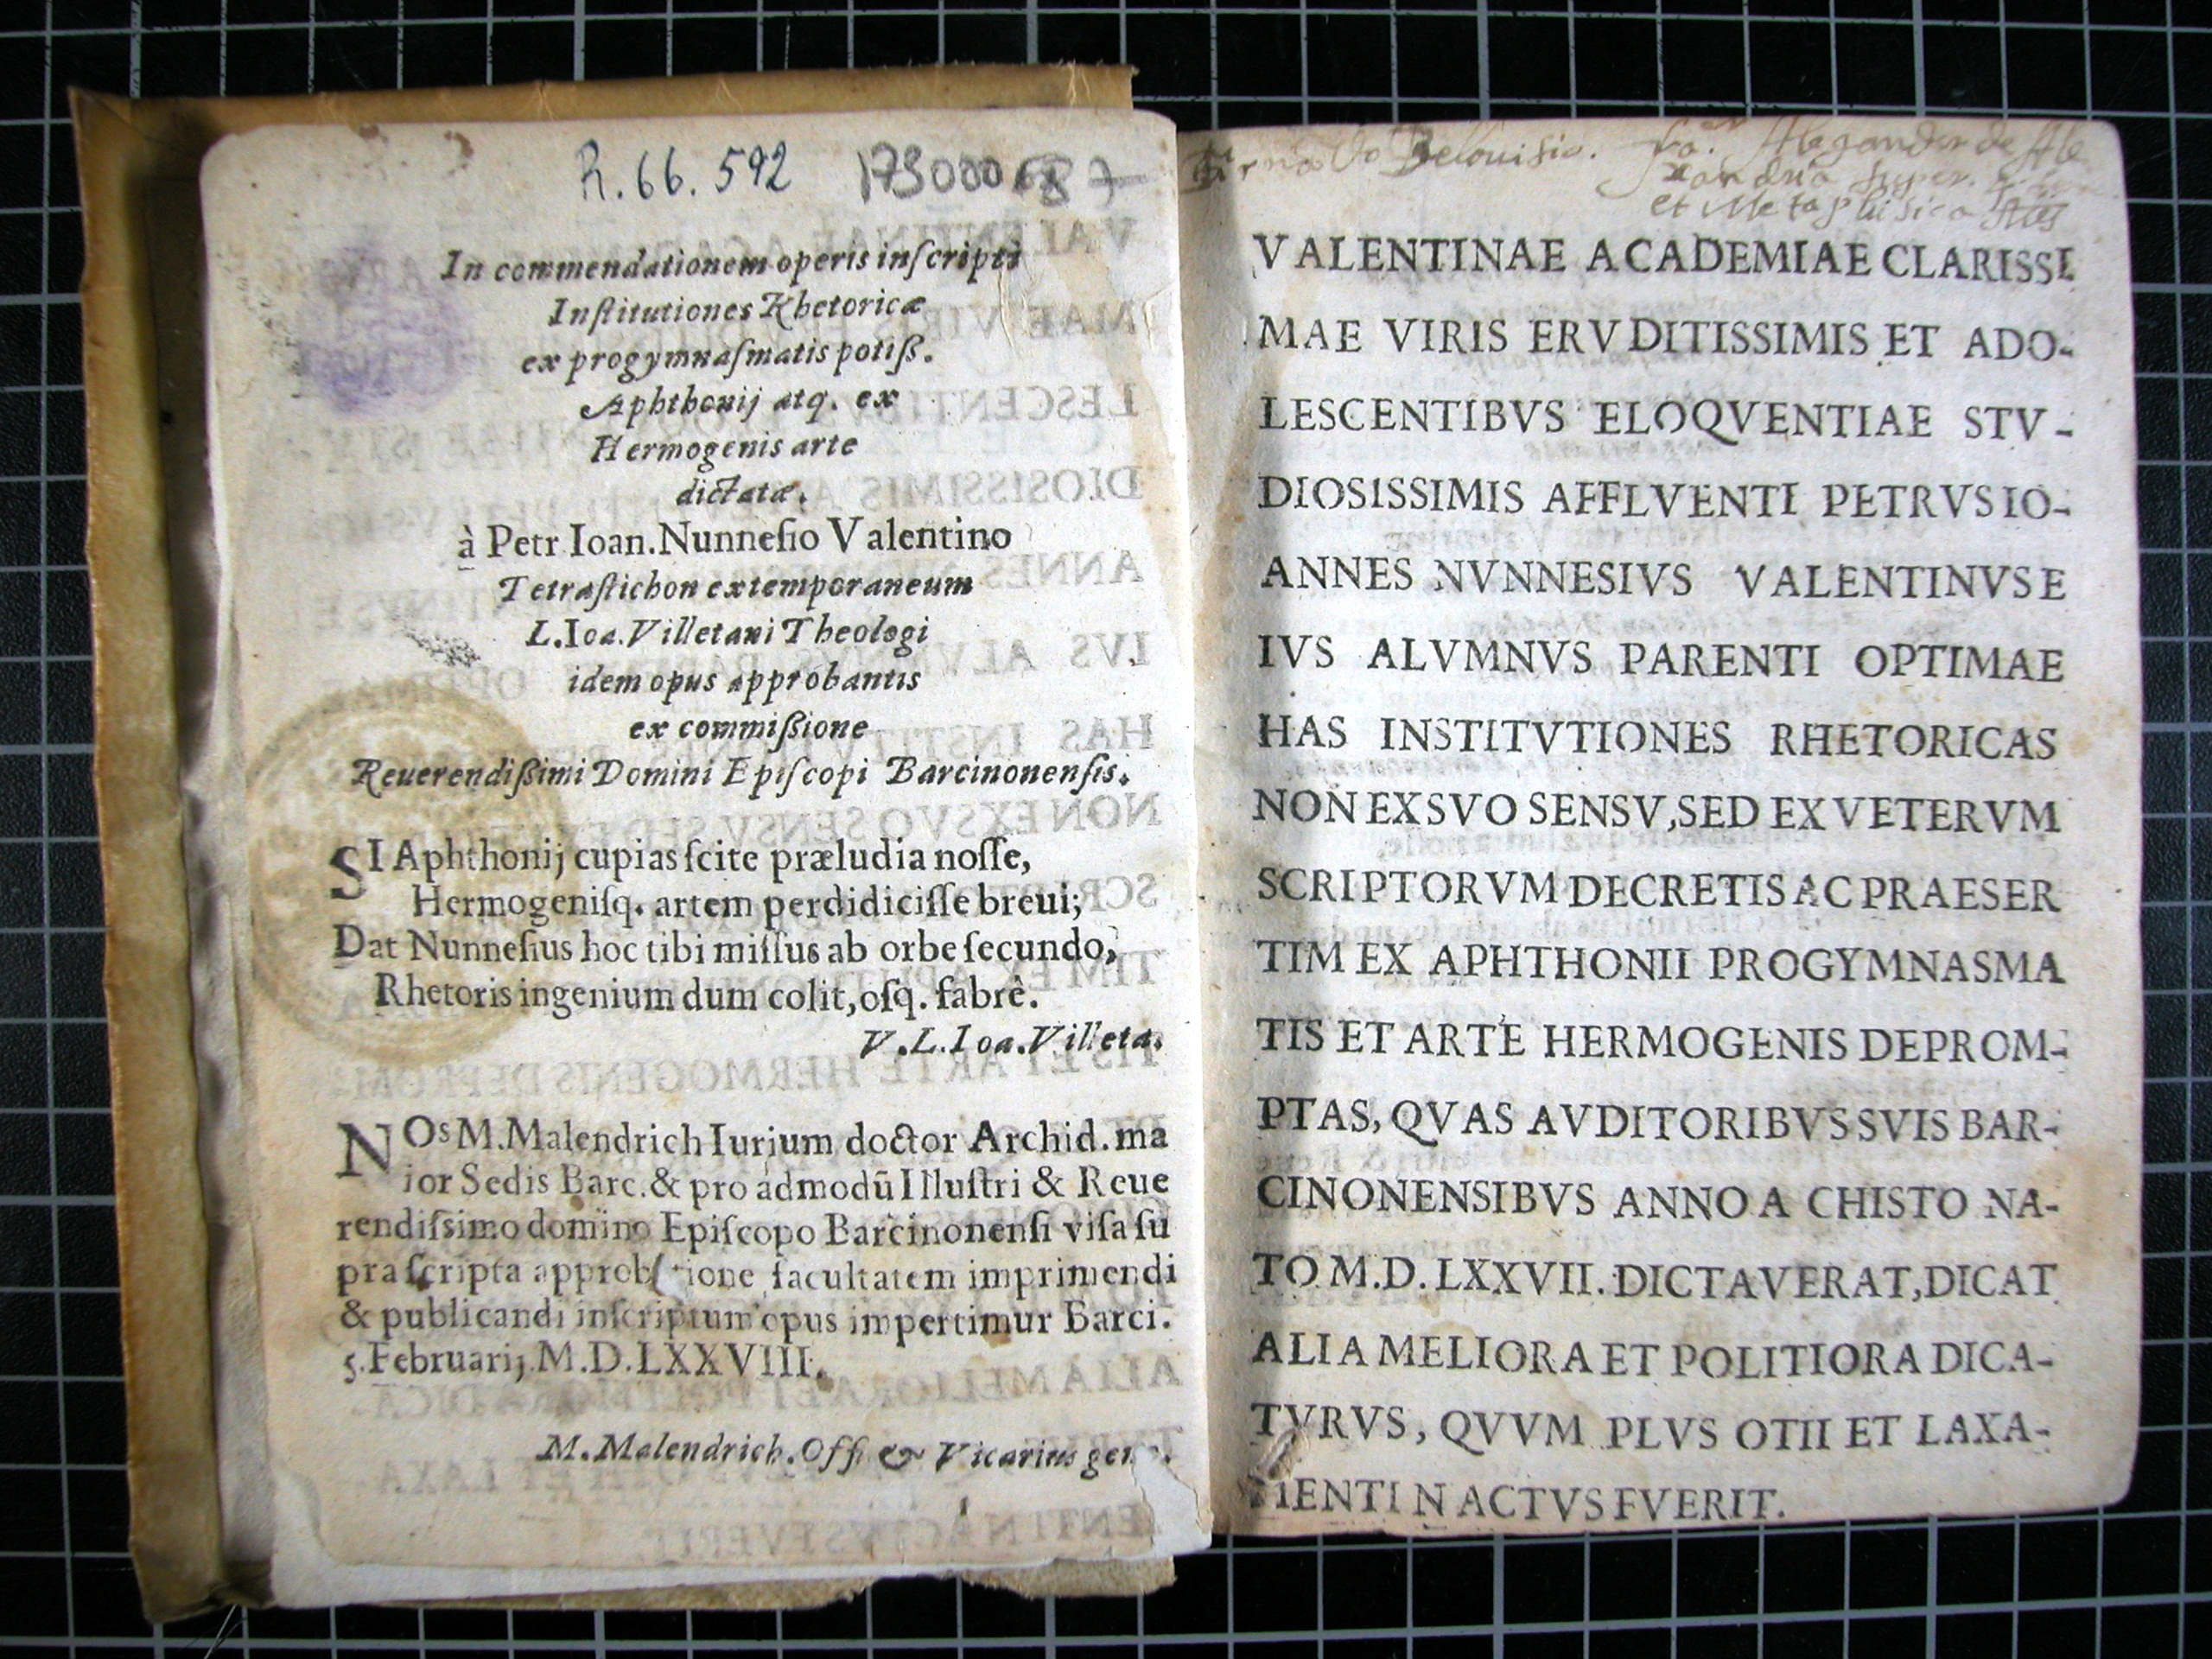 R. 66. 592
In commendationem operis inſcripti
Inſtitutiones Rhetoricæ
ex progymnaſmatis potiß.
Aphthonij atq. ex
Hermogenis arte
dictatæ.
à Petr Ioan. Nunneſio Valentino
Tetraſtichon extemporaneum
L. Ioa. Villetani Theologi
idem opus approbantis
ex commißione
Reuerendißimi Domini Epiſcopi Barcinonenſis.
SI Aphthonij cupias ſcite præludia noſſe,
Hermogeniſq. artem perdidiciſſe breui;
Dat Nunneſius hoc tibi miſſus ab orbe ſecundo,
Rhetoris ingenium dum colit, oſq. fabrè.
V. L. Ioa. Villeta.
NOs M. Malendrich Iurium doctor Archid. ma
ior Sedis Barc. & pro admodū Illuſtri & Reue
rendiſsimo domino Epiſcopo Barcinonenſi viſa ſu
pra ſcripta facultatem imprimendi
& publicandi inſcriptum opus impertimur Barci.
5. Februarij M. D. LXXVIII.
M. Malendrich. Offi & Vicarius
Delouisio. fra. Alegander de Ale
xandria super.
et Metaphisica
VALENTINAE ACADEMIAE CLARISSI
MAE VIRIS ERVDITISSIMIS ET ADO-
LESCENTIBVS ELOQVENTIAE STV-
DIOSISSIMIS AFFLVENTI PETRVS IO-
ANNES NVNNESIVS VALENTINVS E
IVS ALVMNVS PARENTI OPTIMAE
HAS INSTITVTIONES RHETORICAS
NON EX SVO SENSV, SED EX VETERVM
SCRIPTORVM DECRETIS AC PRAESER
TIM EX APHTHONII PROGYMNASMA
TIS ET ARTE HERMOGENIS DEPROM-
PTAS, QVAS AVDITORIBVS SVIS BAR-
CINONENSIBVS ANNO A CHISTO NA-
TO M.D. LXXVII. DICTAVERAT, DICAT
ALIA MELIORA ET POLITIORA DICA-
TVRVS, QVVM PLVS OTII ET LAXA-
MENTI NACTVS FVERIT.